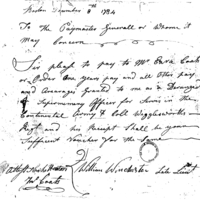 Boston December 8th 1784
To the Paymaster Generall or whome it
may Concern
Sir please to pay to Mr Ezra Coats
or Order One years pay and all Other pay
and Arearages granted to me as a Deranged
Supernumery Officer for Servis in the
Continental Army & Coll Wigglesworth's
Regt and his Receipt Shall be your
Sufficient Voucher for the Same
William Winchester Late Lieut
Coats